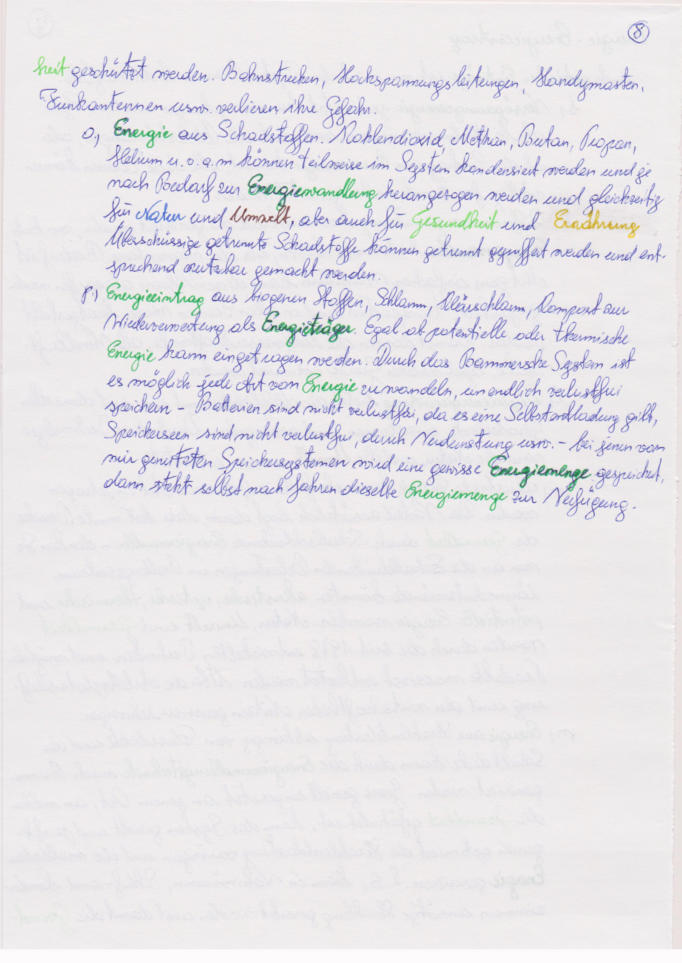 8
heit geschützt werden. Bahnstrecken, Hochspannungsleitungen, Handymasten,
Funkantennen usw. verlieren ihre Gefahr.
o.) Energie aus Schadstoffen. Kohlendioxid, Methan, Butan, Propan,
Helium u. v. a. m können teilweise im System kondensiert werden und je
nach Bedarf zur Energiewandlung herangezogen werden und gleichzeitig
für Natur und Umwelt, aber auch für Gesundheit und Ernährung
Überschüssige getrennte Schadstoffe können getrennt gepuffert werden und ent-
sprechend nutzbar gemacht werden.
p.) Energieeintrag aus biogenen Stoffen, Schlamm, Klärschlamm, Kompost zur
Wiederverwertung als Energieträger. Egal ob potentielle oder thermische
Energie kann eingetragen werden. Durch das System ist
es möglich jede Art von Energie zu wandeln, unendlich verlustfrei
speichern - Batterien sind nicht verlustfrei, da es eine Selbstentladung gibt,
Speicherseen sind nicht verlustfrei, durch Verdunstung usw. - bei jenen von
mir genutzten Speichersystemen wird eine gewisse Energiemenge gespeichert,
dann steht selbst nach Jahren dieselbe Energiemenge zur Verfügung.